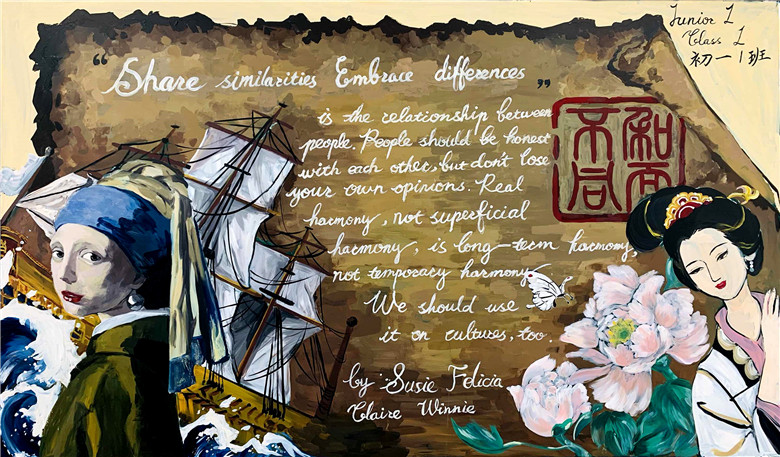 Junior 1
Class 1
初一1班
“Share similarities Embrace differences”
is the relationship between
people. People should be honest
with each other, but don't lose
your own opinions. Real
harmony, not superficial
harmony, is long-term harmony,
not temporacy harmony.
We should use
it on cultures, too.
by Susie Felicia
Claire Winnie
和而
不同